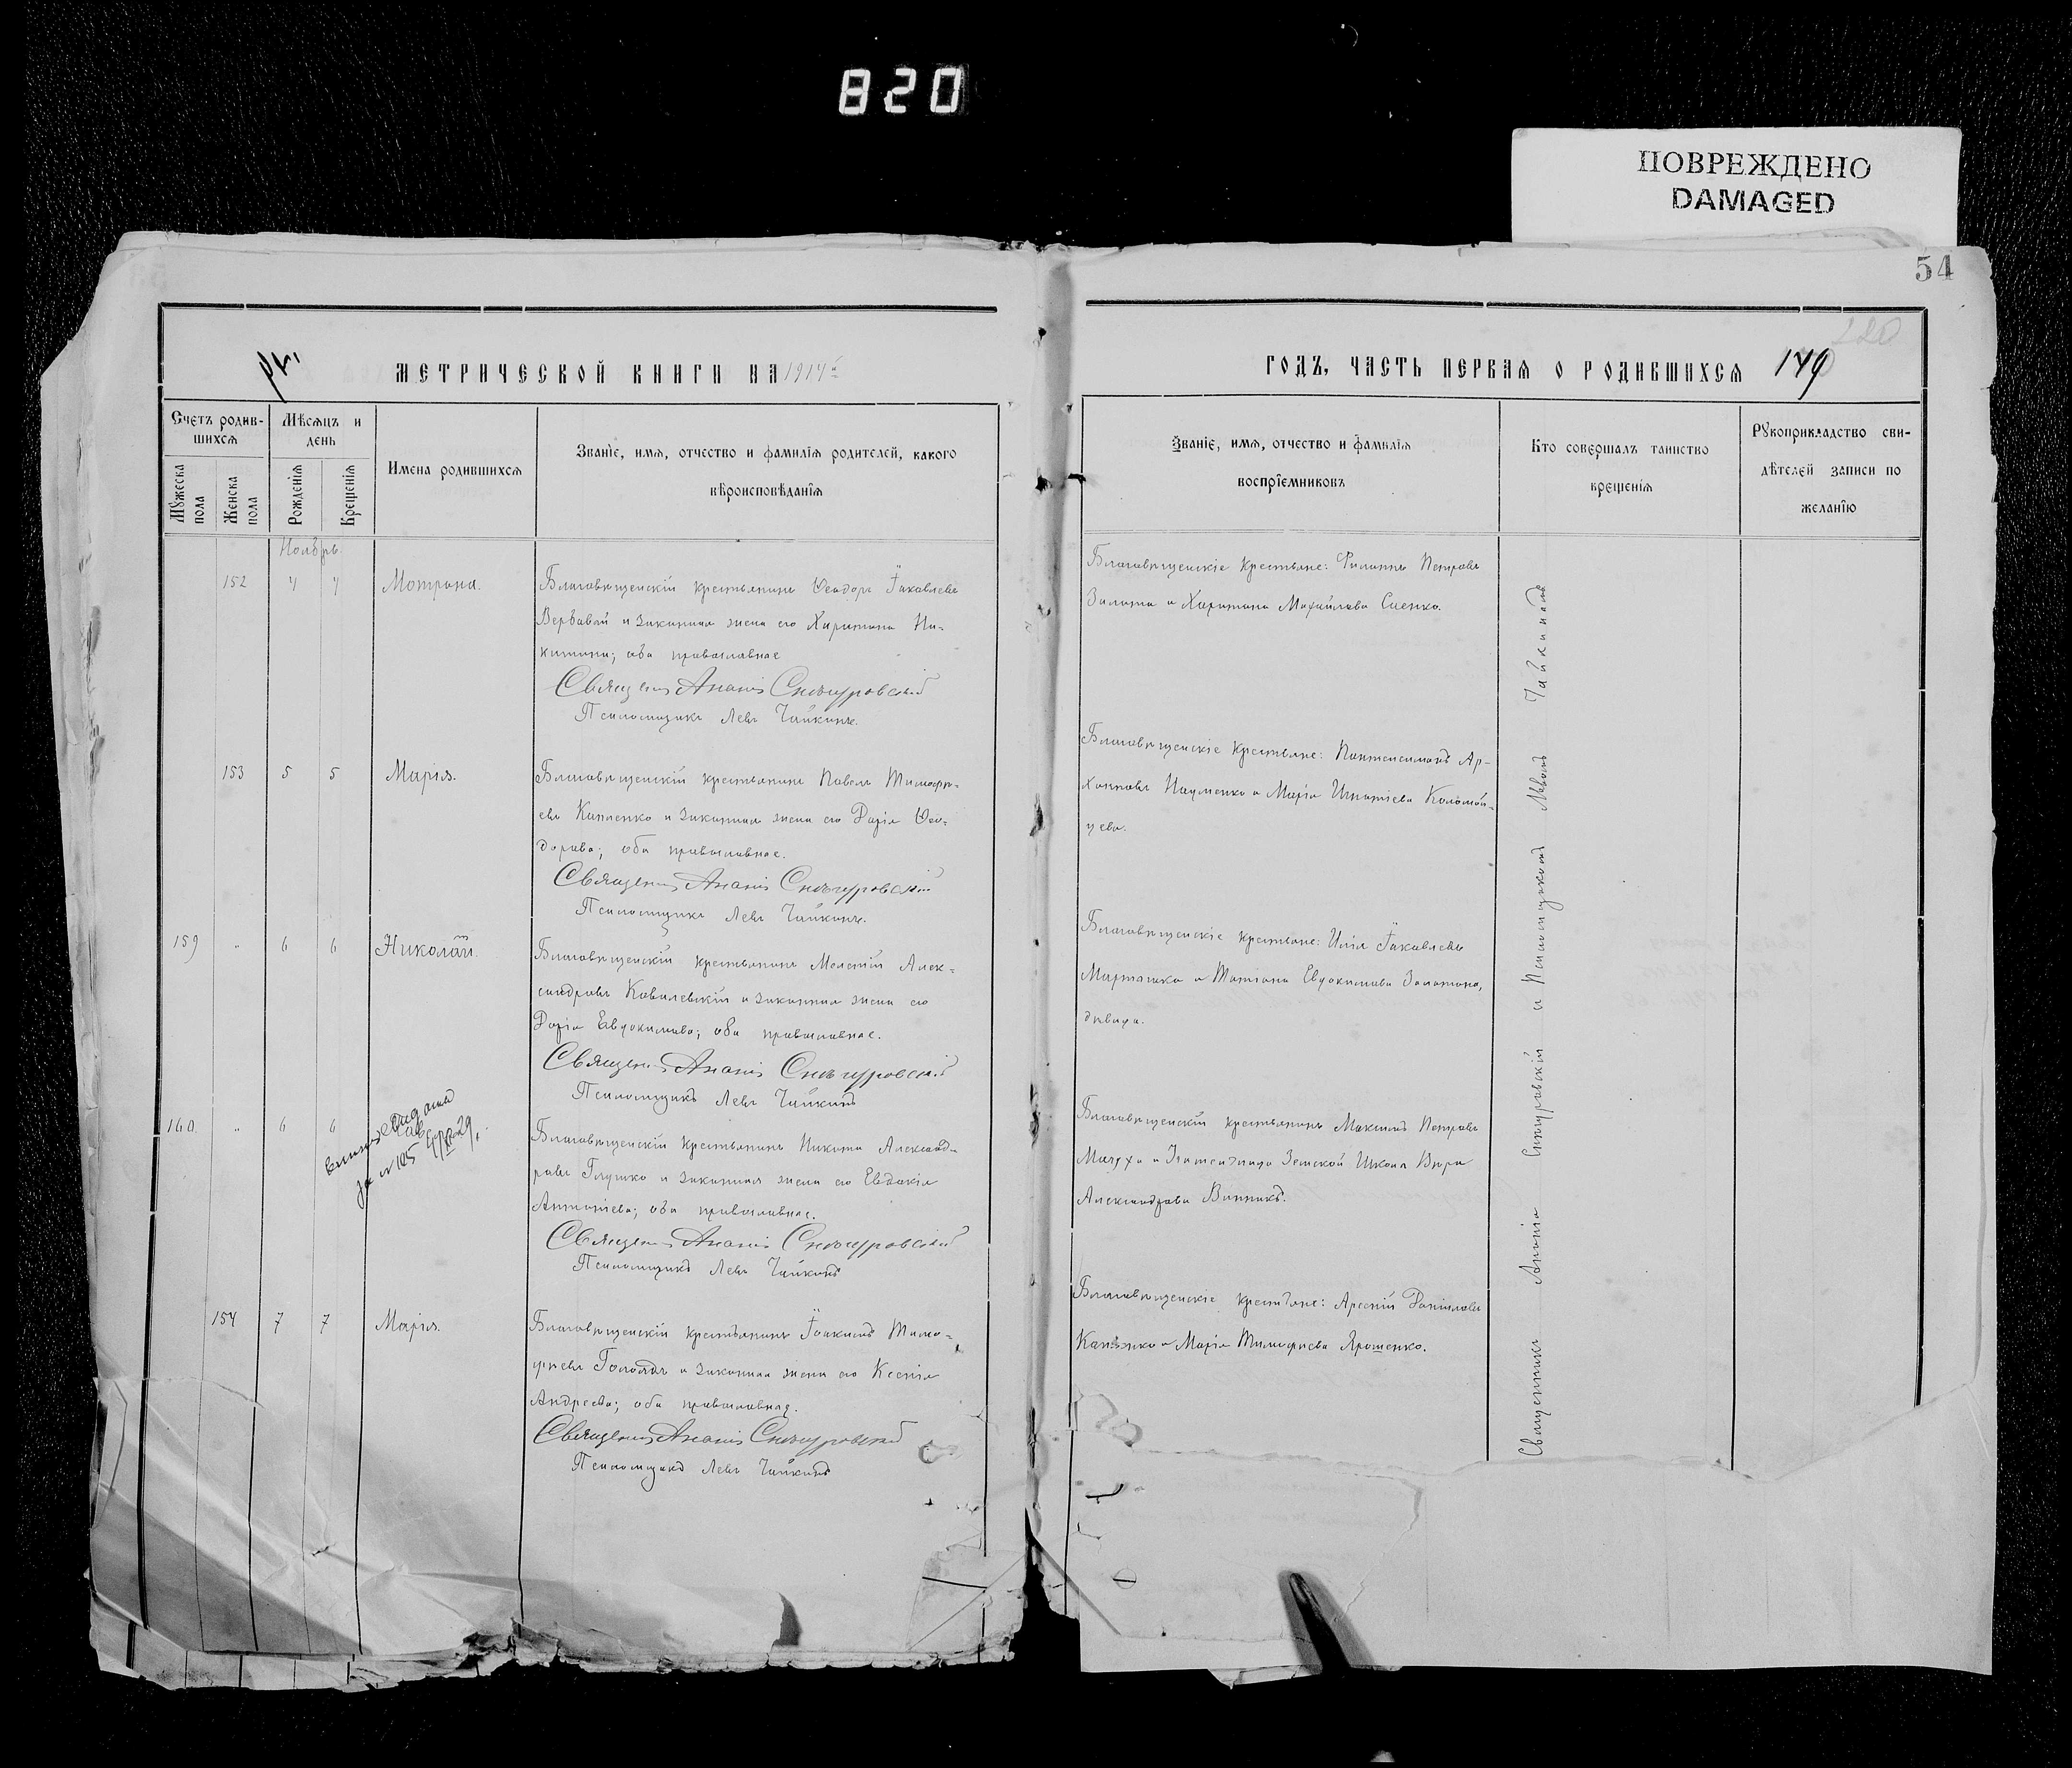 820
ПОВРЕЖДЕНО
DAMAGED
54
МЕТРИЧЕСКОЙ КНИГИ НА 1914й
ГОДЪ, ЧАСТЬ ПЕРВАЯ О РОДИВШИХСЯ 149
Счетъ родив-
шихся
Мужеска пола
Женска пола
Мѣсяцъ и
день
Рожденія
Крещенія
Имена родившихся
Званіе, имя, отчество и фамилія родителей, какого
вѣроисповѣданія
Званіе, имя, отчество и фамилія
воспріемниковъ
Кто совершалъ таинство
крещенія
Рукоприкладство сви-
дѣтелей записи по
желанію
Ноябрь
152 4 4 Мотрона.
Благовѣщенскій крестьянинъ Ѳеодоръ Іаковлевъ
Вербовой и законная жена его Харитина Ни-
китина; оба православные
Священ Ананія Снѣгуровскій
Псаломщикъ Левъ Чайкинъ.
Благовѣщенскіе крестьяне: Филиппъ Петровъ
Золота и Харитина Михайлова Сиенко.
153 5 5 Марія.
Благовѣщенскій крестьянинъ Павелъ Тимофѣ-
евъ и законная жена его Дарія Ѳео-
дорова; оба православные.
Священ Ананія Снѣгуровскій
Псаломщикъ Левъ Чайкинъ.
Благовѣщенскіе крестьяне: Пантелеимонъ Ар-
хиповъ Науменко и Марія Игнатіева Коломой-
цева.
159 " 6 6 Николай.
Благовѣщенскій крестьянинъ Мелетій Алек-
сандровъ Ковалевскій и законная жена его
Дарія Евдокимова; оба православные.
Священ Ананія Снѣгуровскій
Псаломщикъ Левъ Чайкинъ
Благовѣщенскіе крестьяне: Илія Іаковлевъ
и Татіана Евдокимова
дѣвица.
160. " 6 6
за № 105
Благовѣщенскій крестьянинъ Никита Александ-
ровъ Глушко и законная жена его Евдокія
Антоніева; оба православные.
Священ Ананія Снѣгуровскій
Псаломщикъ Левъ Чайкинъ
Благовѣщенскій крестьянинъ Максимъ Петровъ
и Учительница Земской Школы Вѣра
Александрова Винникъ.
154 7 7 Марія.
Благовѣщенскій крестьянинъ Іоакимъ Тимо-
фѣевъ и законная жена его Ксенія
Андреева; оба православные.
Священ Ананія Снѣгуровскій
Псаломщикъ Левъ Чайкинъ
Благовѣщенскіе крестьяне: Арсеній Даніиловъ
и Марія Тимофіева Ярошенко.
Священникъ Ананія Снѣгуровскій и Псаломщикомъ Львомъ Чайкинымъ